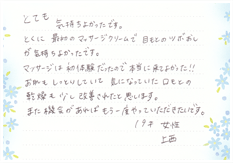 とても
気持ちよかったです。
とくに 最初の マッサージクリームで 目もとの ツボおし
が気持ちよかったです。
マッサージは初体験だったので本当に来てよかった!!
お肌も しっとりしていて 気になっていた 口もとの
乾燥も 少し 改善されたと思います。
また機会があれば もう一度やっていただきたいです。
19才 女性
上西